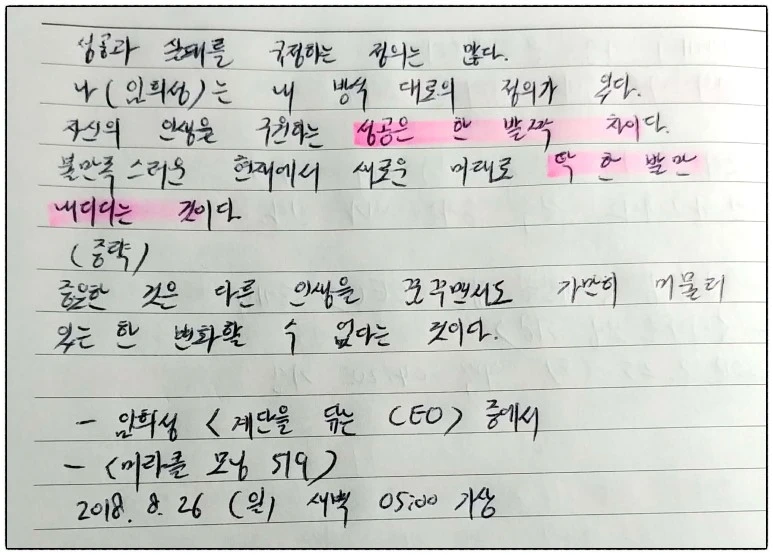 성공과 실패를 규정하는 정의는 많다.
나(임희성)는 내 방식 대로의 정의가 있다.
자신의 인생을 구원하는 성공은 한 발짝 차이다.
불만족스러운 현재에서 새로운 미래로 딱 한 발만
내디디는 것이다.
(중략)
중요한 것은 다른 인생을 꿈꾸면서도 가만히 머물러
있는 한 변화할 수 없다는 것이다.
- 임희성 <계단을 닦는 CEO> 중에서
- <미라클 모닝 519>
2018. 8. 26 (일) 새벽 05:00 기상